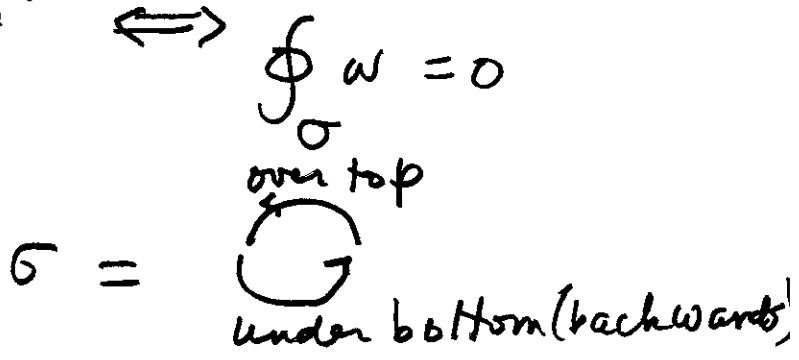 ⟺ ∮_σ ω = 0
over top
σ =
under bottom (backwards)